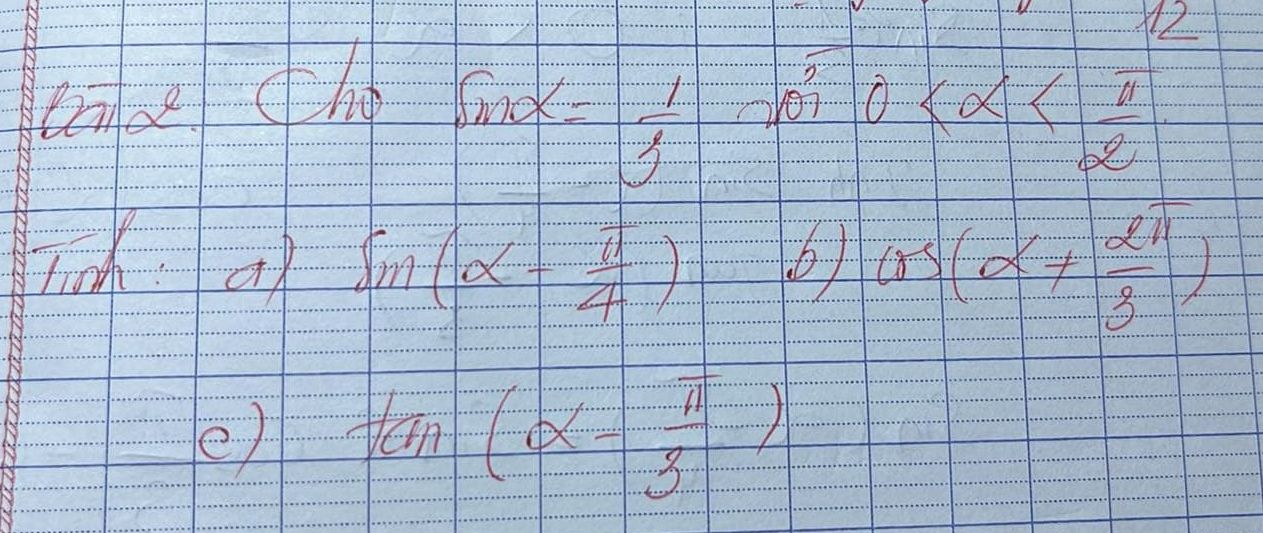 12
Bài 2. Cho sinα = 1/3 với 0 < α < π/2.
Tính: a) sin(α - π/4) b) cos(α + 2π/3)
c) tan(α - π/3)